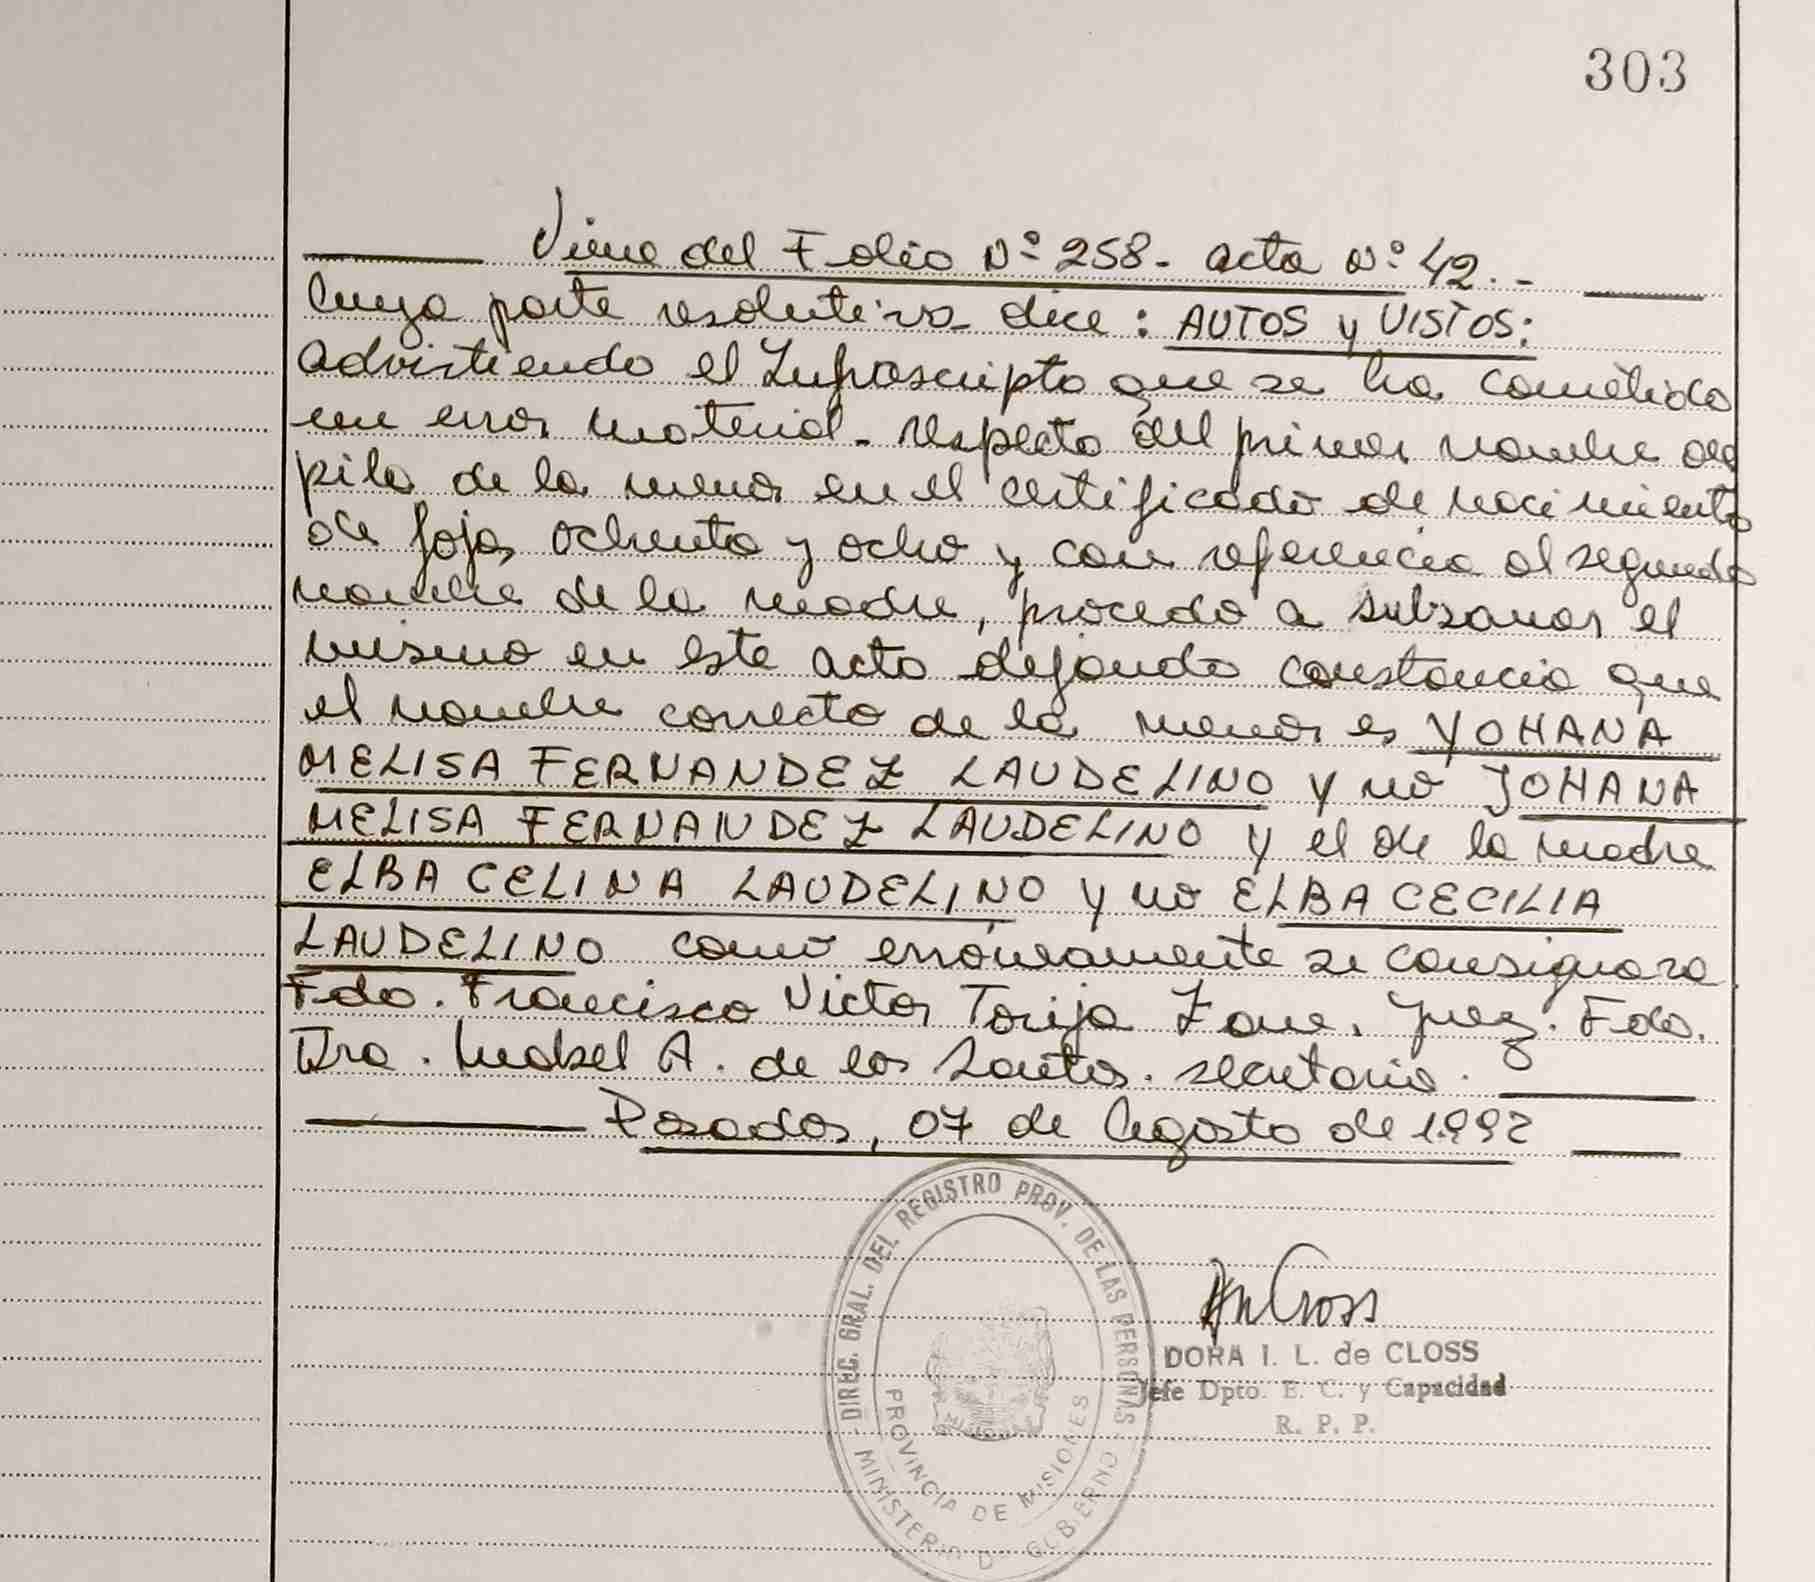 303
Viene del Folio Nº 258 - acta Nº 42. -
Cuya parte resolutiva dice: AUTOS y VISTOS:
Advirtiendo el Infrascripto que se ha cometido
un error material respecto del primer nombre de
pila de la menor en el certificado de nacimiento
de foja ochenta y ocho y con referencia al segundo
nombre de la madre, procedo a subsanar el
mismo en este acto dejando constancia que
el nombre correcto de la menor es YOHANA
MELISA FERNANDEZ LAUDELINO y no JOHANA
MELISA FERNANDEZ LAUDELINO y el de la madre
ELBA CELINA LAUDELINO y no ELBA CECILIA
LAUDELINO como erróneamente se consignara
Fdo. Francisco Victor Torija Zane. Juez. Fdo.
Dra. Mabel A. de los Santos. secretaria.
Posadas, 07 de Agosto de 1992
DIREC. GRAL. DEL REGISTRO PROV. DE LAS PERSONAS
PROVINCIA DE MISIONES
MINISTERIO D GOBIERNO
DORA I. L. de CLOSS
Jefe Dpto. E. C. y Capacidad
R. P. P.